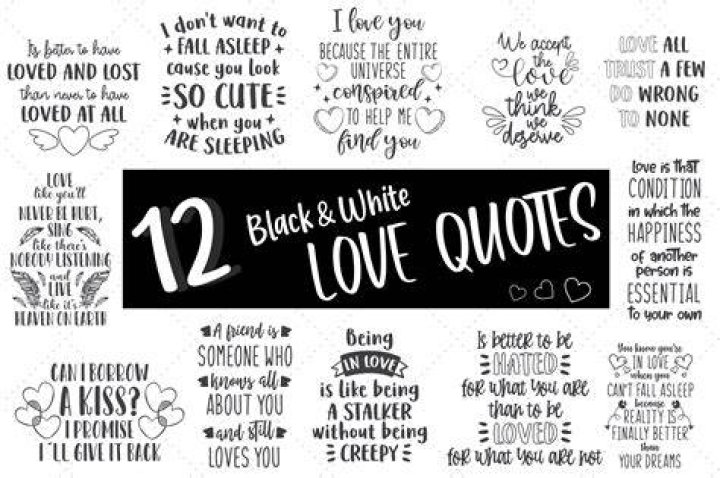 Is better to have
LOVED AND LOST
than never to have
LOVED AT ALL
I don't want to
FALL ASLEEP
cause you look
SO CUTE
when you
ARE SLEEPING
I love you
BECAUSE THE ENTIRE
UNIVERSE
conspired
TO HELP ME
find you
We accept
the
love
we
think
we
deserve
LOVE ALL
TRUST A FEW
DO WRONG
TO NONE
LOVE
like you'll
NEVER BE HURT,
SING
like there's
NOBODY LISTENING
and
LIVE
like it's
HEAVEN ON EARTH
12
Black & White
LOVE QUOTES
Love is that
CONDITION
in which the
HAPPINESS
of another
person is
ESSENTIAL
to your own
CAN I BORROW
A KISS?
I PROMISE
I´LL GIVE IT BACK
A friend is
SOMEONE WHO
knows all
ABOUT YOU
and still
LOVES YOU
Being
IN LOVE
is like being
A STALKER
without being
CREEPY
Is better to be
HATED
for what you are
than to be
LOVED
for what you are not
You know you're
IN LOVE
when you
CAN'T FALL ASLEEP
because
REALITY IS
FINALLY BETTER
than
YOUR DREAMS